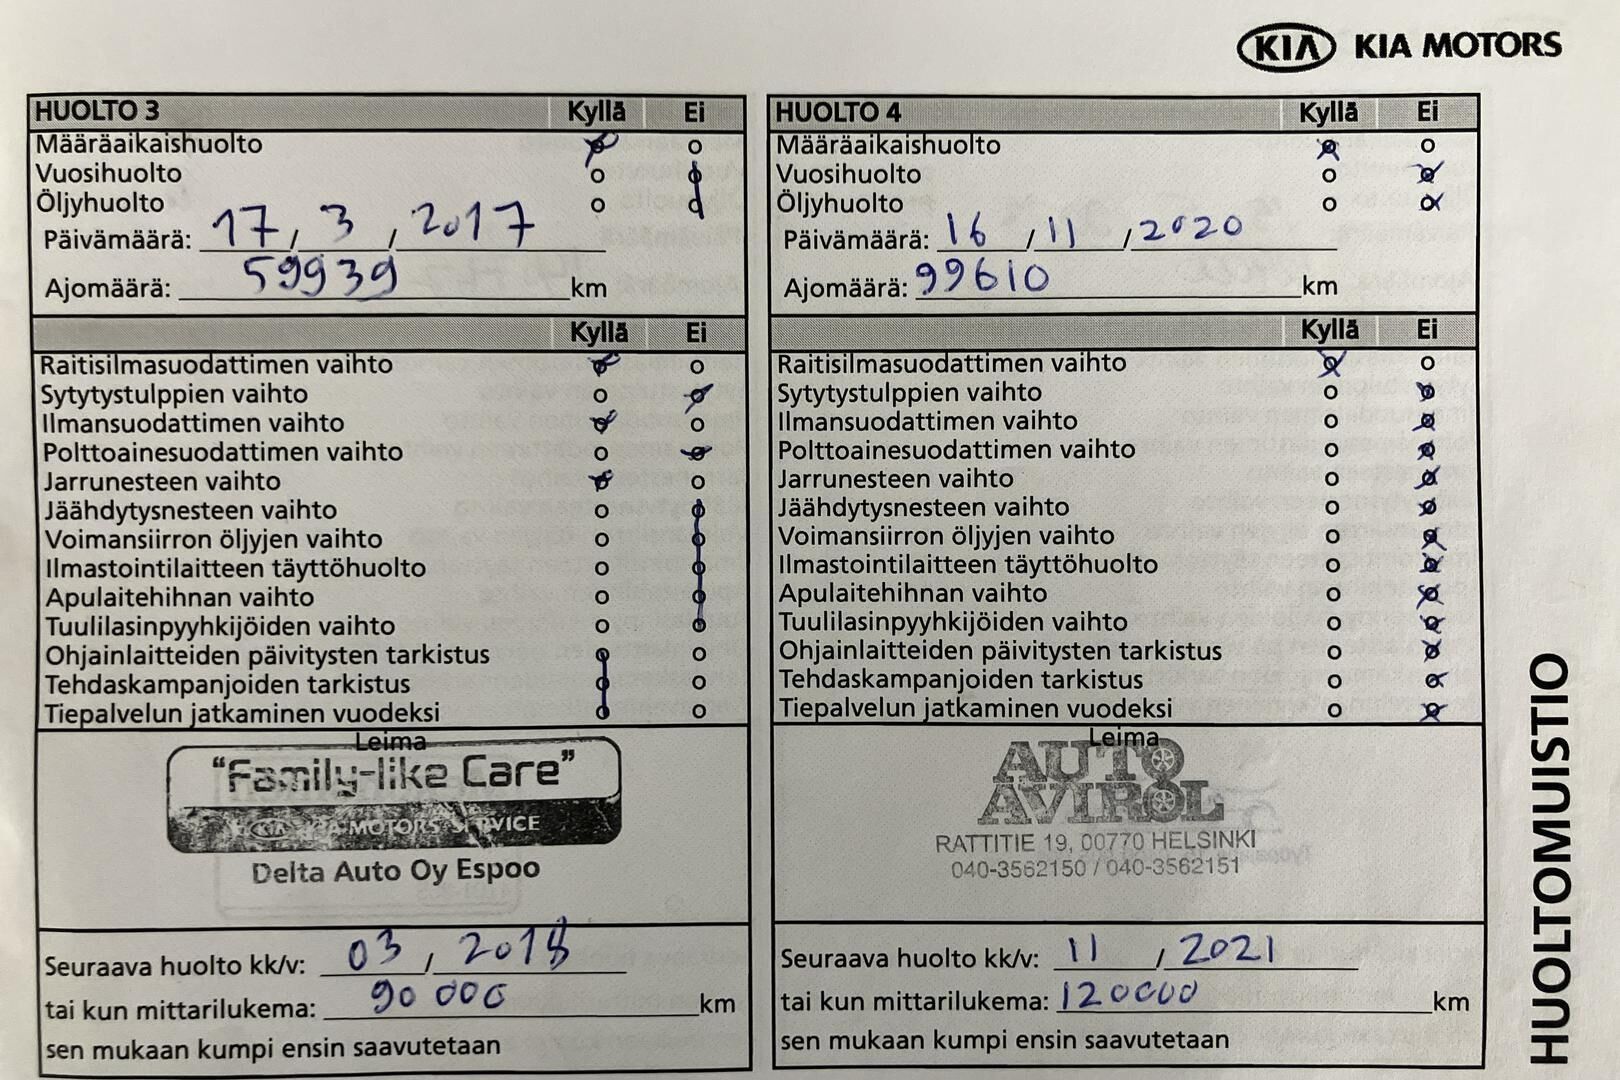 KIA KIA MOTORS
HUOLTO 3 Kyllä Ei
Määräaikaishuolto
Vuosihuolto
Öljyhuolto
Päivämäärä: 17 / 3 / 2017
Ajomäärä: 59939 km
Kyllä Ei
Raitisilmasuodattimen vaihto
Sytytystulppien vaihto
Ilmansuodattimen vaihto
Polttoainesuodattimen vaihto
Jarrunesteen vaihto
Jäähdytysnesteen vaihto
Voimansiirron öljyjen vaihto
Ilmastointilaitteen täyttöhuolto
Apulaitehihnan vaihto
Tuulilasinpyyhkijöiden vaihto
Ohjainlaitteiden päivitysten tarkistus
Tehdaskampanjoiden tarkistus
Tiepalvelun jatkaminen vuodeksi
Leima
"Family-like Care"
KIA KIA MOTORS SERVICE
Delta Auto Oy Espoo
Seuraava huolto kk/v: 03 / 2018
tai kun mittarilukema: 90 000 km
sen mukaan kumpi ensin saavutetaan
HUOLTO 4 Kyllä Ei
Määräaikaishuolto
Vuosihuolto
Öljyhuolto
Päivämäärä: 16 / 11 / 2020
Ajomäärä: 99610 km
Kyllä Ei
Raitisilmasuodattimen vaihto
Sytytystulppien vaihto
Ilmansuodattimen vaihto
Polttoainesuodattimen vaihto
Jarrunesteen vaihto
Jäähdytysnesteen vaihto
Voimansiirron öljyjen vaihto
Ilmastointilaitteen täyttöhuolto
Apulaitehihnan vaihto
Tuulilasinpyyhkijöiden vaihto
Ohjainlaitteiden päivitysten tarkistus
Tehdaskampanjoiden tarkistus
Tiepalvelun jatkaminen vuodeksi
Leima
AUTO
AVIROL
RATTITIE 19, 00770 HELSINKI
040-3562150 / 040-3562151
Seuraava huolto kk/v: 11 / 2021
tai kun mittarilukema: 120000 km
sen mukaan kumpi ensin saavutetaan
HUOLTOMUISTIO